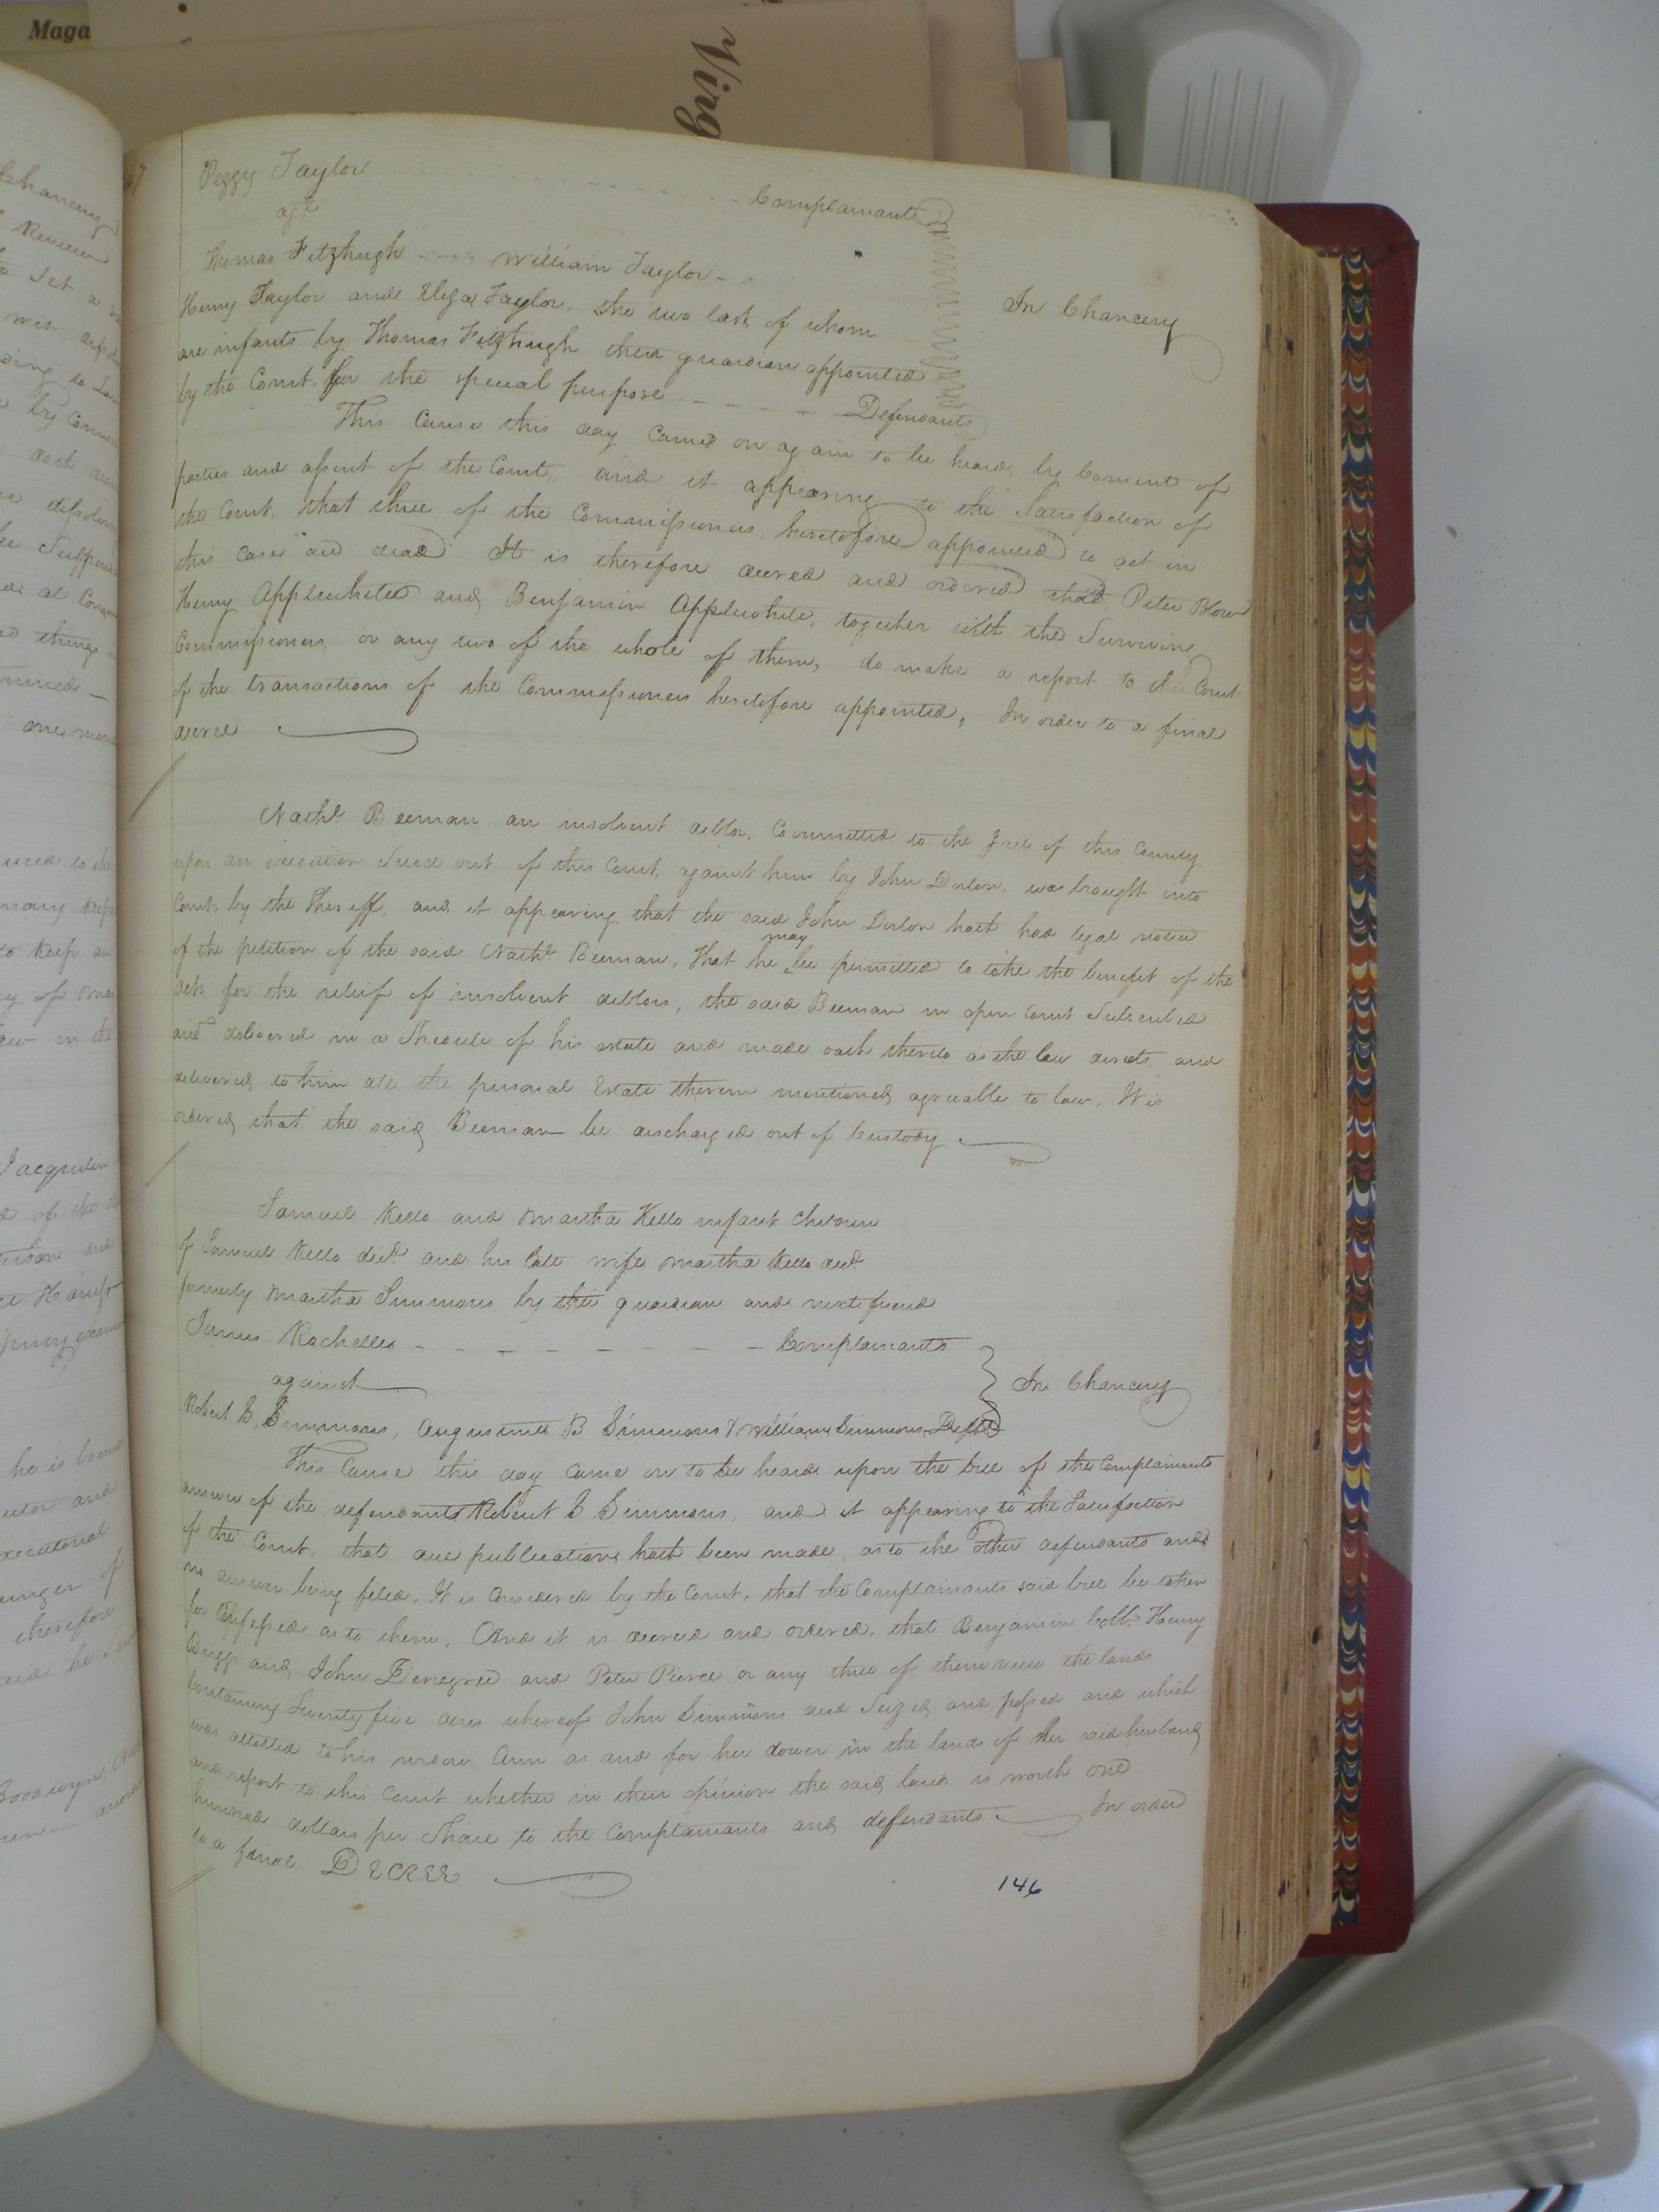 Maga
Virg
Peggy Taylor Complainant
agt
Thomas Fitzhugh William Taylor
Henry Taylor and Eliza Taylor, the two last of whom
In Chancery
are infants by Thomas Fitzhugh their guardian appointed
by the Court for the special purpose Defendants
This Cause this day came on again to be heard, by Consent of
parties and assent of the Court, and it appearing to the Satisfaction of
the Court, that three of the Commissioners, heretofore appointed to act in
this case are dead It is therefore decreed and ordered that Peter Blow
Henry Applewhite and Benjamin Applewhite, together with the Surviving
Commissioners, or any two of the whole of them, do make a report to the Court
of the transactions of the Commissioners heretofore appointed, In order to a final
decree
Nathl Beeman an insolvent debtor, Committed to the Jail of this County
upon an execution Sued out of this Court, against him by John Darlon, was brought into
Court, by the Sheriff, and it appearing that the said John Darlon hath had legal notice
of the petition of the said Nathl Beeman, that he may be permitted to take the benefit of the
acts for the relief of insolvent debtors, the said Beeman in open Court Subscribed
and delivered in a Schedule of his estate and made oath thereto as the law directs, and
delivered to him all the personal Estate therein mentioned agreeable to law, It is
ordered that the said Beeman be discharged out of Custody
Samuel Kello and Martha Kello infant Children
of Samuel Kello decd and his late wife Martha Kello decd
formerly Martha Simmons by the guardian and next friend
James Rochelle Complainants
against
In Chancery
Robert S. Simmons, Augustine B Simmons & William Simmons Defts
This Cause this day came on to be heard upon the bill of the Complainants
answer of the defendants Robert S Simmons, and it appearing to the Satisfaction
of the Court, that due publication hath been made, as to the other defendants and
no answer being filed, It is Considered by the Court, that the Complainants said bill be taken
for Confessed as to them, And it is decreed and ordered, that Benjamin Cobb, Henry
Briggs and John Denegree and Peter Pierce or any three of them view the lands
Containing Seventy five acres whereof John Simmons died Seized and possed and which
was allotted to his widow Ann as and for her dower in the lands of her said husband
and report to this Court whether in their opinion the said land is worth one
hundred dollars per Share to the Complainants and defendants In order
to a final DECREE
146